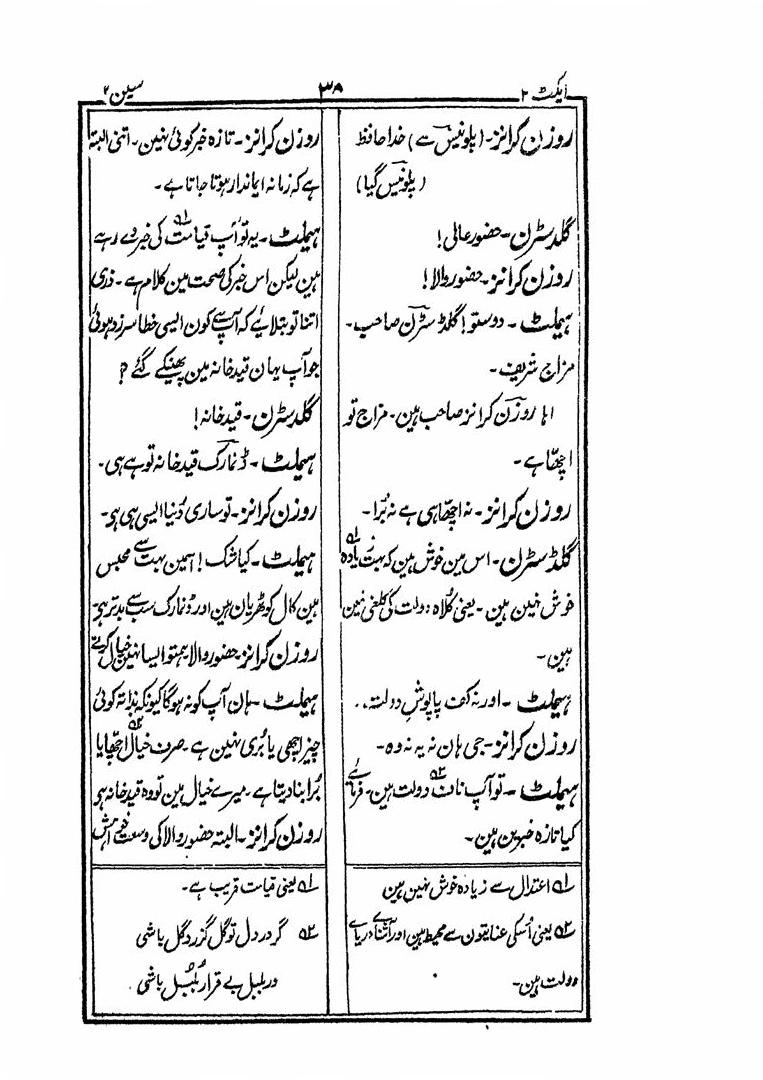 ایکٹ ۲
۳۸
سین ۲
روزن کرانز۔ (پلونیس سے) خدا حافظ
(پلونیس گیا)
گلڈسٹرن۔ حضور عالی!
روزن کرانز۔ حضور والا!
ہیملٹ۔ دوستو! گلڈسٹرن صاحب۔
مزاج شریف۔
اہا روزن کرانز صاحب ہین۔ مزاج تو
اچھّا ہے۔
روزن کرانز۔ نہ اچھّا ہی ہے نہ بُرا۔
گلڈسٹرن۔ اس مین خوش ہین کہ بہت زیادہ ۱؎
خوش نہین ہین۔ یعنی کُلاہ دولت کی کلغی نہین
ہین۔
ہیملٹ۔ اور نہ کف پاپوشِ دولت؟..
روزن کرانز۔ جی ہان نہ یہ نہ وہ۔
ہیملٹ۔ تو آپ ناف ۲؎ دولت ہین۔ فرمائیے
کیا تازہ خبرین ہین۔
۱؎ اعتدال سے زیادہ خوش نہین ہین
۲؎ یعنی اُسکی عنایتون سے محیط ہین اور آشنائے دریائے
دولت ہین۔
روزن کرانز۔ تازہ خبر کوئی نہین۔ اتنی البتہ
ہے کہ زمانہ ایماندار ہوتا جاتا ہے۔
ہیملٹ۔ یہ تو آپ قیامت ۱؎ کی خبر دے رہے
ہین لیکن اس خبر کی صحت مین کلام ہے۔ ذری
اتنا تو بتلائیے کہ آپ سے کون ایسی خطا سرزد ہوئی
جو آپ یہان قید خانہ مین پھینکے گئے؟
گلڈسٹرن۔ قید خانہ!
ہیملٹ۔ ڈنمارک قید خانہ تو ہے ہی۔
روزن کرانز۔ تو ساری دُنیا ایسی ہی ہے۔
ہیملٹ۔ کیا شک! اسمین بہت سے محبس
ہین کال کوٹھریان ہین اور ڈنمارک سب سے بدتر ہے۔
روزن کرانز۔ حضور والا ہم تو ایسا نہین خیال کرتے
ہیملٹ۔ ہان آپ کو نہ ہو گا کیونکہ بذاتہ کوئی
چیز اچھی یا بُری نہین ہے۔ صرف خیال ۲؎ اچھا یا
بُرا بنا دیتا ہے۔ میرے خیال مین تو وہ قید خانہ ہے
روزن کرانز۔ البتہ حضور والا کی وسعت
۱؎ یعنی قیامت قریب ہے۔
۲؎ گر در دل تو گل گزرد گل باشی
ور بلبل بے قرار بُلبُل باشی۔